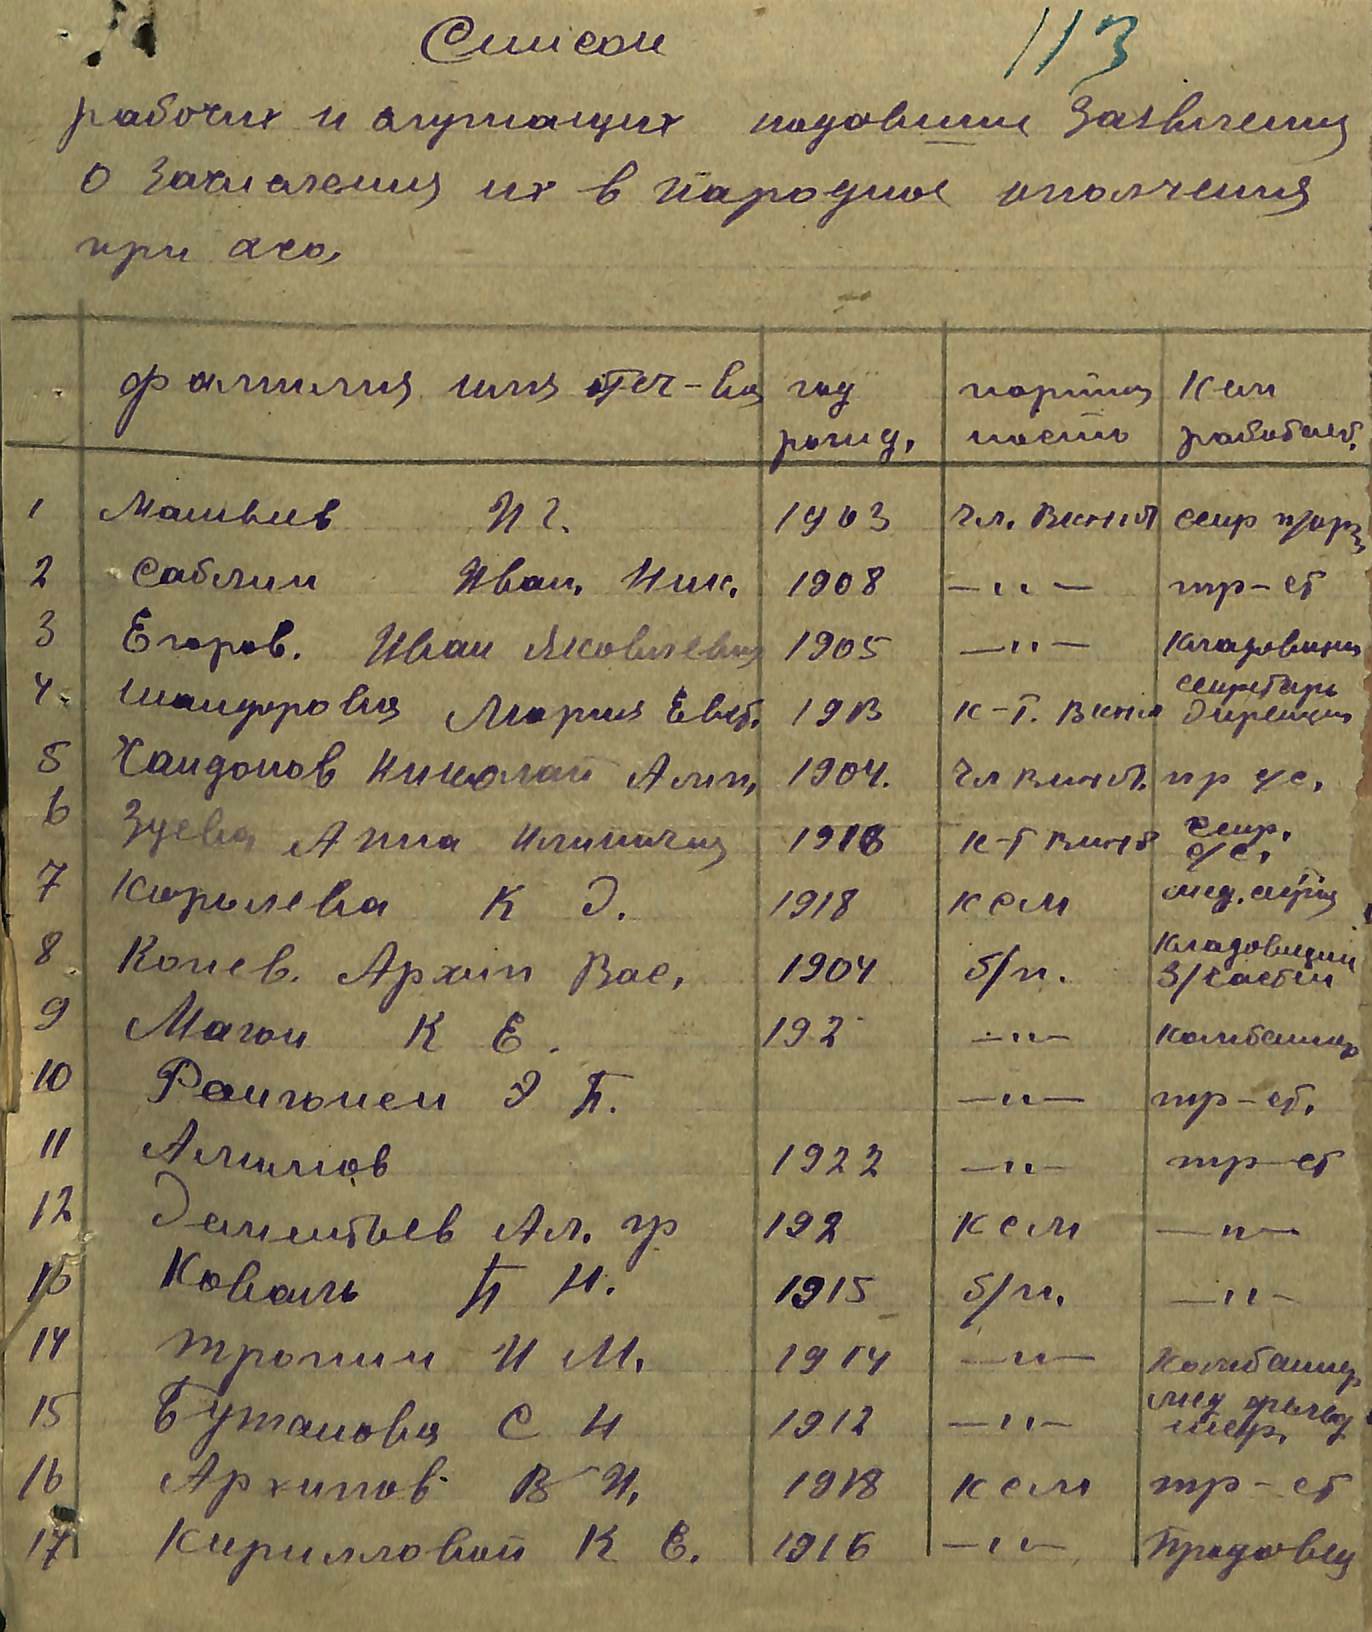 Список 113
рабочих и служащих подавшии заявления
о зачисления их в народное ополчения
при
фамилия имя отеч-ва год рожд. партий ность Кем работает.
1 Матвиев И Г. 1903 чл. ВКПб секр
2 Саблин Иван. Ник. 1908 —〃— тр-ст
3 Егоров. Иван Яковлевич 1905 —〃— Кладовщик
4. Шандровка Мария Евст. 1913 К-Т. ВКПб секретарь дирекции
5 Хандопов Николай Алип. 1904. чл ВКПб.
6 Зуева Анна 1918 К-Т ВКПб секр. с/с.
7 Королева К Э. 1918 ксм мед. сестра
8 Конев. Архип Вас. 1904 б/п. Кладовщик з/частей
9 Магон К Е. 192 —〃— комбайнер
10 Э П. —〃— тр-ст.
11 Алимов 1922 —〃— тр-ст
12 Дементьев Ал. гр 192 ксм —〃—
13 Коваль П Н. 1915 б/п. —〃—
14 Тропин И М. 1914 —〃— Комбайнер
15 Бутакова С Н 1912 —〃— мед фельд шер.
16 Архипов В И. 1918 ксм тр-ст
17 Кирилловой К Е. 1916 —〃— Продавец